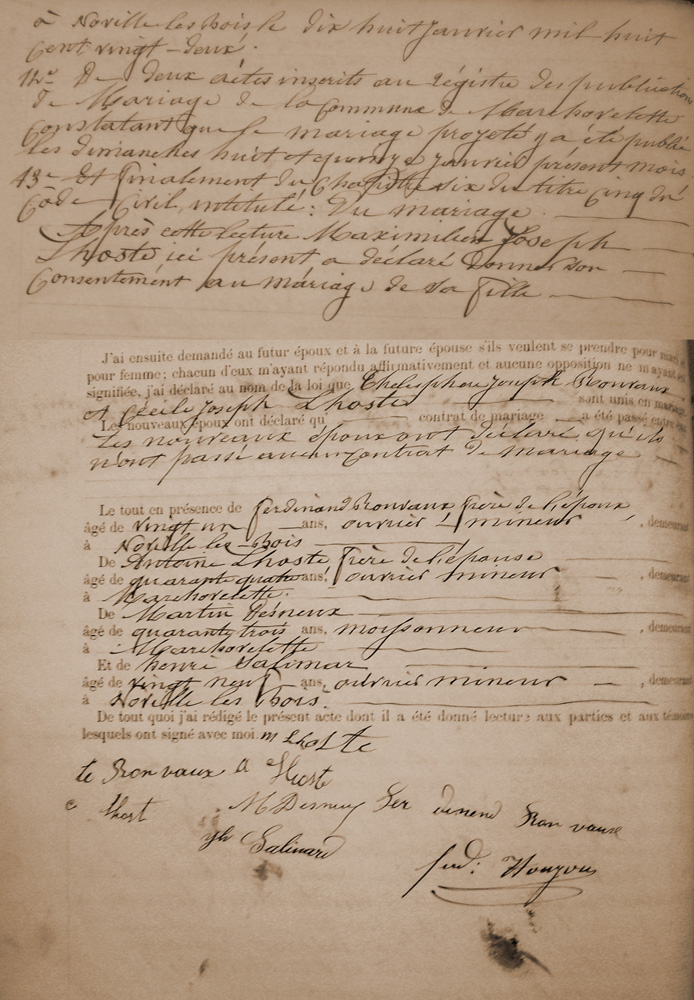 à Noville les bois le dix huit Janvier mil huit
cent vingt-deux.
12e De deux actes inscrits au régistre des publications
de Mariage de la Commune de Marchovelette
Constatant que le mariage projeté y a été publié
les dimanches huit et quinze Janvier présent mois
13e Et finalement du Chapitre six du titre cinq du
Code Civil, intitulé: Du mariage.
Après cette lecture Maximilien Joseph
Lhoste ici présent a déclaré donner son
Consentement au mariage de sa fille
J'ai ensuite demandé au futur époux et à la future épouse s'ils veulent se prendre pour mari
pour femme; chacun d'eux m'ayant répondu affirmativement et aucune opposition ne m'ayant été
signifiée, j'ai déclaré au nom de la loi que Thelesphore Joseph Ronvaux
et Cécile Joseph Lhoste sont unis en mariage
Les nouveaux époux ont déclaré qu contrat de mariage a été passé entre
Les nouveaux époux ont déclaré qu'ils
n'ont passé aucun contrat de mariage
Le tout en présence de Ferdinand Ronvaux frère de l'époux
âgé de vingt un ans, ouvrier mineur, demeurant
à Noville les-Bois
De Antoine Lhoste frère de l'épouse
âgé de quarante quatre ans, ouvrier mineur, demeurant
à Marchovelette.
De Martin Desneux
âgé de quarante trois ans, moissonneur, demeurant
à Marchovelette
Et de henri Salimar
âgé de vingt neuf ans, ouvrier mineur, demeurant
à Noville les bois.
De tout quoi j'ai rédigé le présent acte dont il a été donné lecture aux parties et aux témoins
lesquels ont signé avec moi. m Lhoste
te Ronvaux A Lhost
c Lhost M Desneux Fer dinend Ron vaux
Salimard
ferd: Houzou